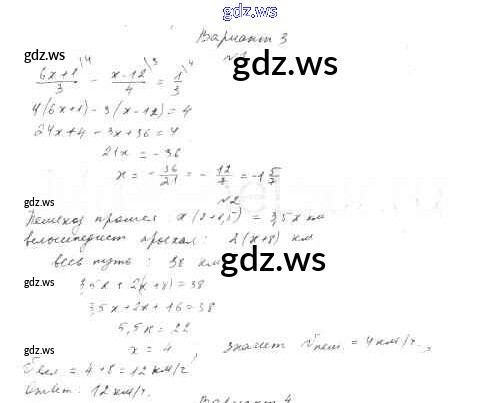 gdz.ws
Вариант 3
gdz.ws gdz.ws
№1
(6x+1)/3 \4 − (x−12)/4 \3 = 1/3 \4
4(6x+1) − 3(x−12) = 4
24x+4 − 3x+36 = 4
21x = −36
x = −36/21 = −12/7 = −1 5/7
gdz.ws
№2
Пешеход прошел x(2+1,5) = 3,5x км
велосипедист проехал: 2(x+8) км
весь путь: 38 км gdz.ws
gdz.ws
3,5x + 2(x+8) = 38
3,5x + 2x + 16 = 38
5,5x = 22
gdz.ws
x = 4, значит Vпеш. = 4 км/г,
Vвел = 4+8 = 12 км/г
Ответ: 12 км/г. gdz.ws
Вариант 4